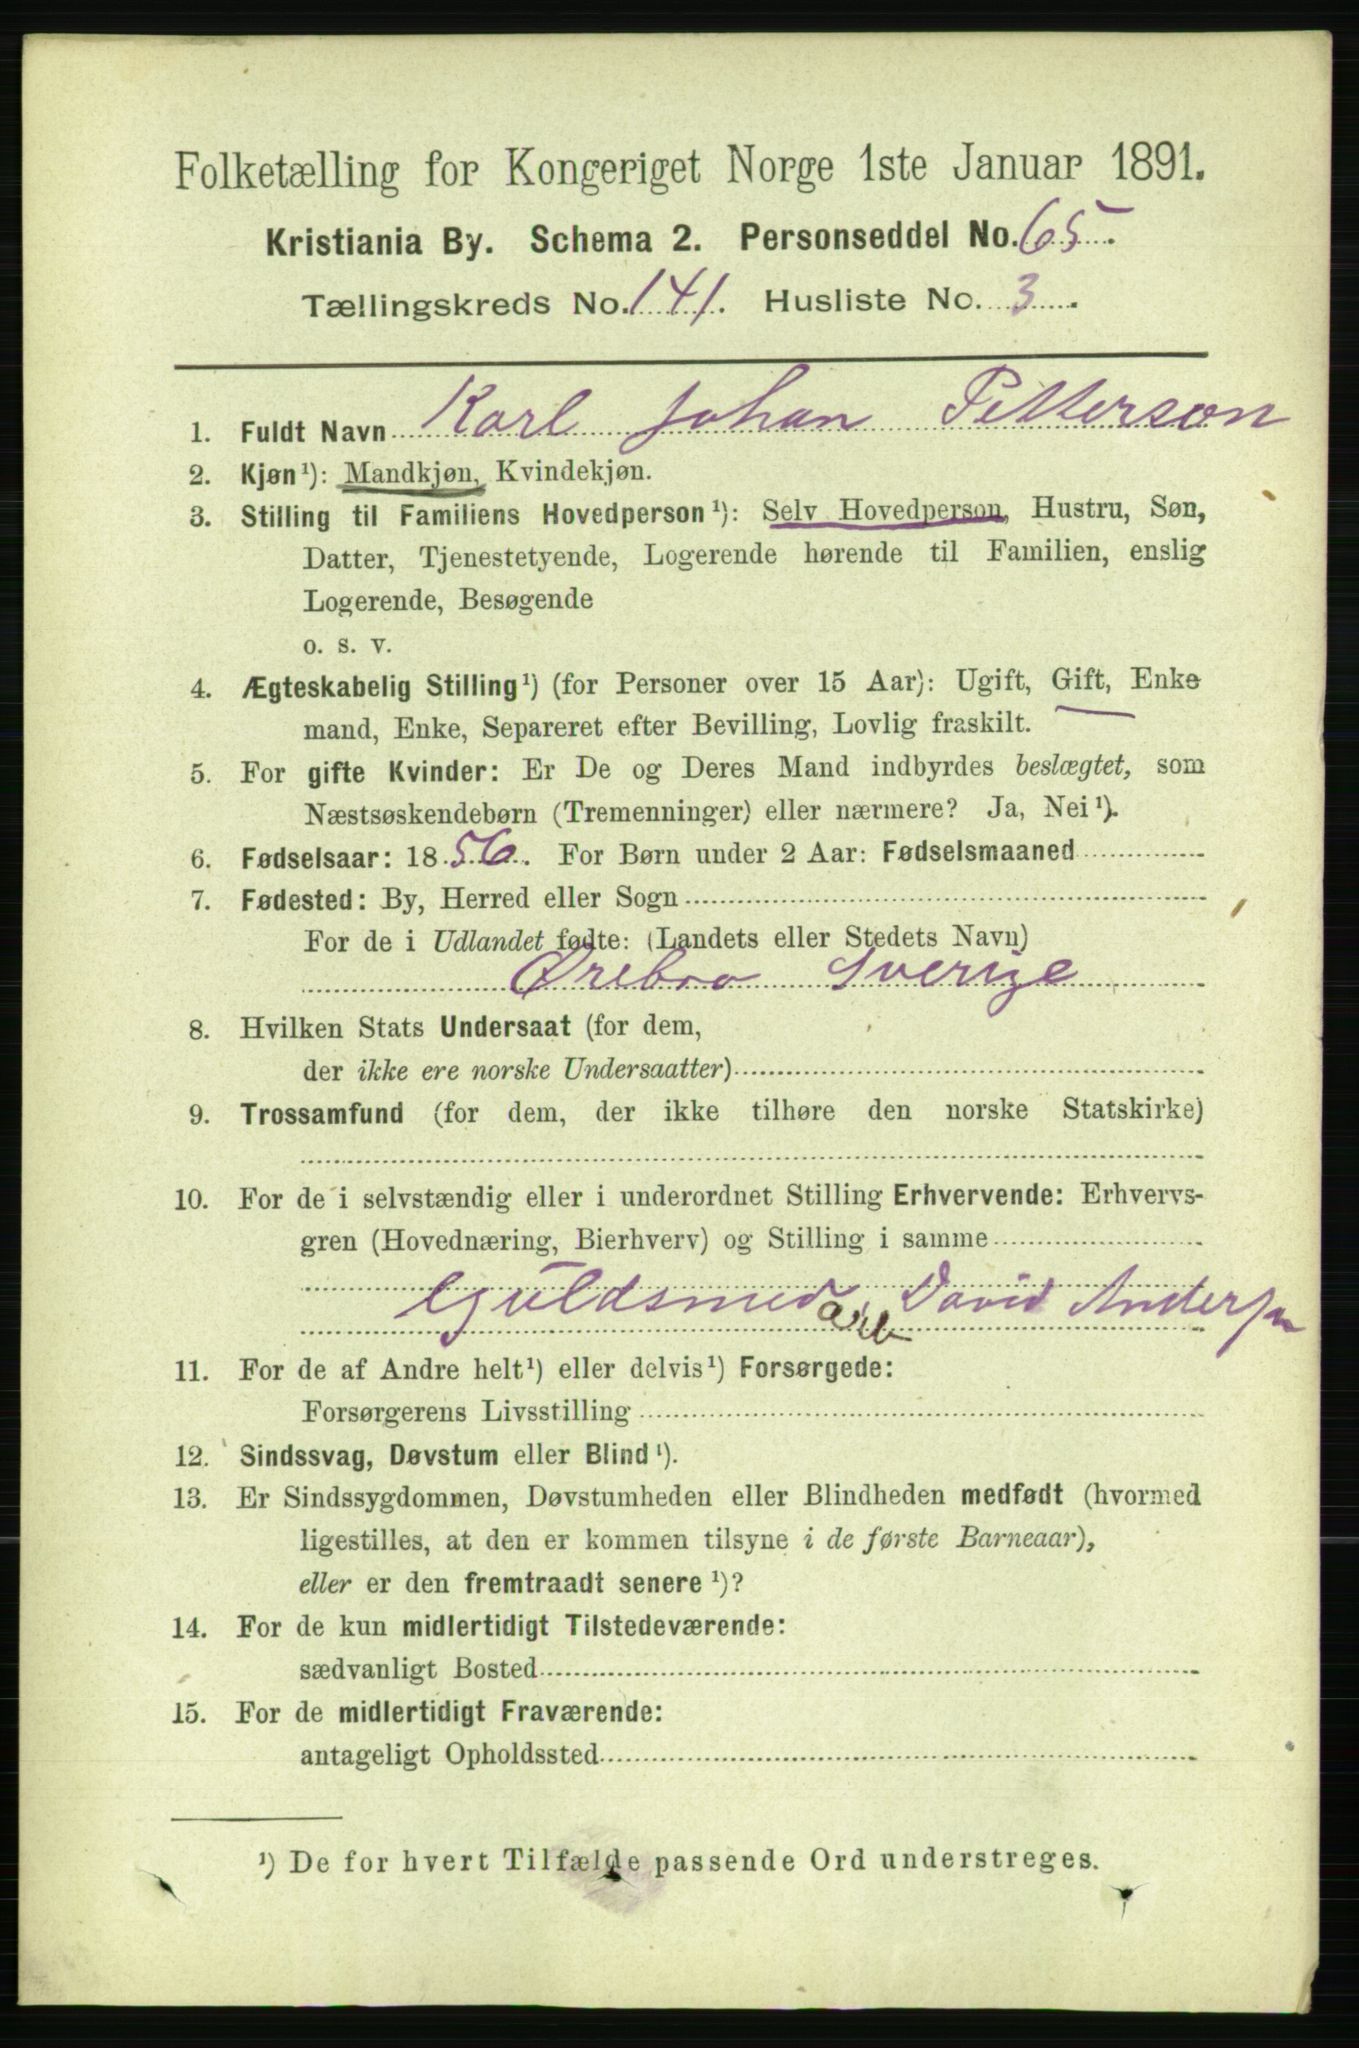 Folketælling for Kongeriget Norge 1ste Januar 1891.
Kristiania By. Schema 2. Personseddel No. 65.
Tællingskreds No. 141. Husliste No. 3.
1. Fuldt Navn Karl Johan Petterson
2. Kjøn¹): Mandkjøn, Kvindekjøn.
3. Stilling til Familiens Hovedperson¹): Selv Hovedperson, Hustru, Søn,
Datter, Tjenestetyende, Logerende hørende til Familien, enslig
Logerende, Besøgende
o. s. v.
4. Ægteskabelig Stilling¹) (for Personer over 15 Aar): Ugift, Gift, Enke
mand, Enke, Separeret efter Bevilling, Lovlig fraskilt.
5. For gifte Kvinder: Er De og Deres Mand indbyrdes beslægtet, som
Næstsøskendebørn (Tremenninger) eller nærmere? Ja, Nei¹).
6. Fødselsaar: 1856. For Børn under 2 Aar: Fødselsmaaned
7. Fødested: By, Herred eller Sogn
For de i Udlandet fødte: (Landets eller Stedets Navn)
Ørebro Sverige
8. Hvilken Stats Undersaat (for dem,
der ikke ere norske Undersaatter)
9. Trossamfund (for dem, der ikke tilhøre den norske Statskirke)
10. For de i selvstændig eller i underordnet Stilling Erhvervende: Erhvervs-
gren (Hovednæring, Bierhverv) og Stilling i samme
Guldsmed arb David Andersen
11. For de af Andre helt¹) eller delvis¹) Forsørgede:
Forsørgerens Livsstilling
12. Sindssvag, Døvstum eller Blind¹).
13. Er Sindssygdommen, Døvstumheden eller Blindheden medfødt (hvormed
ligestilles, at den er kommen tilsyne i de første Barneaar),
eller er den fremtraadt senere¹)?
14. For de kun midlertidigt Tilstedeværende:
sædvanligt Bosted
15. For de midlertidigt Fraværende:
antageligt Opholdssted
¹) De for hvert Tilfælde passende Ord understreges.